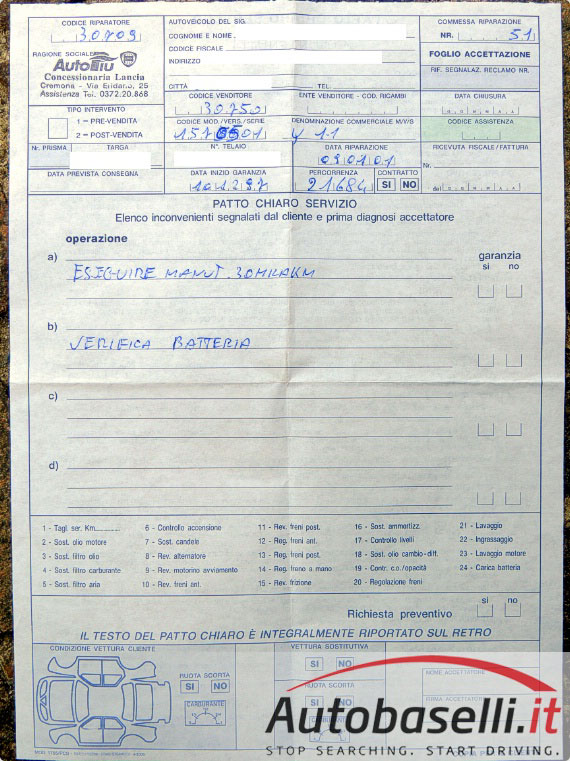 CODICE RIPARATORE
30709
RAGIONE SOCIALE
AutoPiù
Concessionaria Lancia
Cremona - Via Eridano, 25
Assistenza Tel. 0372.20.868
AUTOVEICOLO DEL SIG.
COGNOME E NOME
CODICE FISCALE
INDIRIZZO
CITTÀ TEL.
COMMESSA RIPARAZIONE
NR. 51
FOGLIO ACCETTAZIONE
RIF. SEGNALAZ. RECLAMO NR.
TIPO INTERVENTO
1 = PRE-VENDITA
2 = POST-VENDITA
CODICE VENDITORE
30750
ENTE VENDITORE - COD. RICAMBI
DATA CHIUSURA
CODICE MOD./VERS./SERIE
DENOMINAZIONE COMMERCIALE M/V/S
Y 1.1
CODICE ASSISTENZA
Nr. PRISMA TARGA
N°. TELAIO
DATA RIPARAZIONE
090101
RICEVUTA FISCALE/FATTURA
Nr.
DATA PREVISTA CONSEGNA
DATA INIZIO GARANZIA
101297
PERCORRENZA
21684
CONTRATTO
SI NO
del
PATTO CHIARO SERVIZIO
Elenco inconvenienti segnalati dal cliente e prima diagnosi accettatore
operazione
garanzia
si no
a)
ESEGUIRE MANUT. 30MILAKM
b)
VERIFICA BATTERIA
c)
d)
1 - Tagl. ser. Km
2 - Sost. olio motore
3 - Sost. filtro olio
4 - Sost. filtro carburante
5 - Sost. filtro aria
6 - Controllo accensione
7 - Sost. candele
8 - Rev. alternatore
9 - Rev. motorino avviamento
10 - Rev. freni ant.
11 - Rev. freni post.
12 - Reg. freni ant.
13 - Reg. freni post.
14 - Reg. freno a mano
15 - Rev. frizione
16 - Sost. ammortizz.
17 - Controllo livelli
18 - Sost. olio cambio-diff.
19 - Contr. c.o./opacità
20 - Regolazione freni
21 - Lavaggio
22 - Ingrassaggio
23 - Lavaggio motore
24 - Carica batteria
si no
Richiesta preventivo
IL TESTO DEL PATTO CHIARO È INTEGRALMENTE RIPORTATO SUL RETRO
CONDIZIONE VETTURA CLIENTE
RUOTA SCORTA
SI NO
CARBURANTE
VETTURA SOSTITUTIVA
SI NO
RUOTA SCORTA
SI NO
CARBURANTE
NOME ACCETTATORE
FIRMA ACCETTATORE
Autobaselli.it
STOP SEARCHING. START DRIVING.